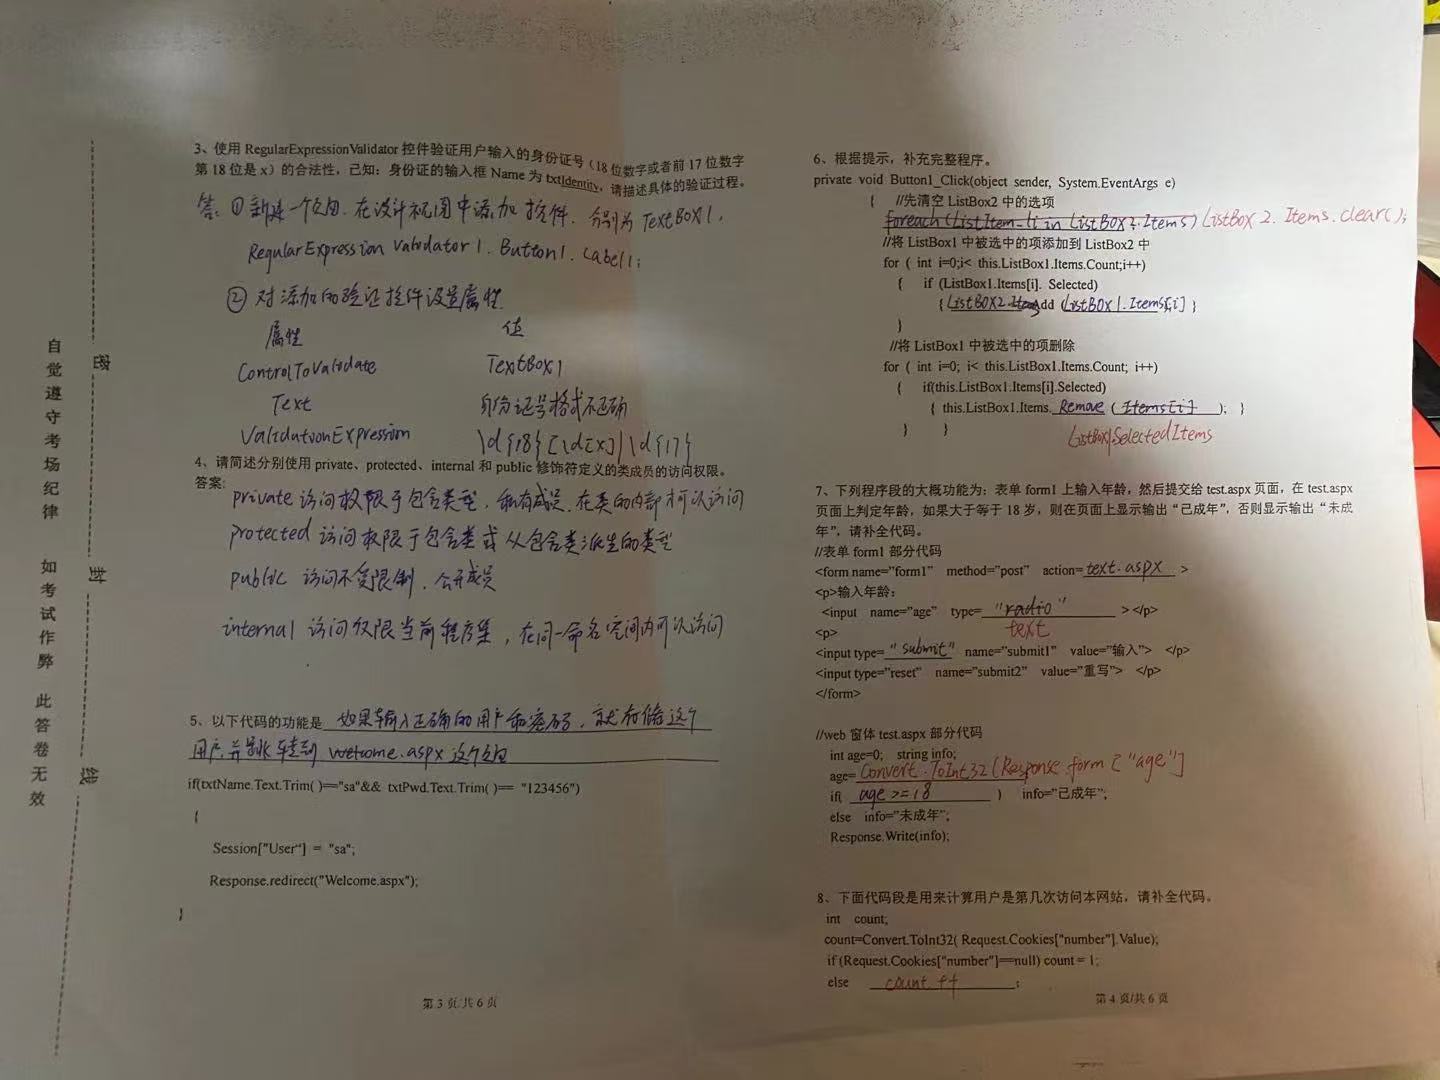 自觉遵守考场纪律 如考试作弊 此答卷无效
密 封 线
3、使用 RegularExpressionValidator 控件验证用户输入的身份证号（18 位数字或者前 17 位数字
第 18 位是 x）的合法性，已知：身份证的输入框 Name 为 txtIdentity，请描述具体的验证过程。
答：①新建一个页面，在设计视图中添加控件，分别为 TextBox1，
RegularExpression Validator1. Button1. Label1;
② 对添加的验证控件设置属性
属性 值
ControlToValidate TextBox1
Text 身份证号格式不正确
ValidationExpression \d{18}[\d[x]|\d{17}
4、请简述分别使用 private、protected、internal 和 public 修饰符定义的类成员的访问权限。
答案: private 访问权限于包含类型，私有成员，在类的内部才可以访问
protected 访问权限于包含类或从包含类派生的类型
public 访问不受限制．公开成员
internal 访问仅限当前程序集，在同一命名空间内可以访问
5、以下代码的功能是 如果输入正确的用户和密码，就存储这个
用户，并跳转到 welcome.aspx 这个页面
if(txtName.Text.Trim( )=="sa"&& txtPwd.Text.Trim( )== "123456")
{
Session["User"] = "sa";
Response.redirect("Welcome.aspx");
}
第 3 页/共 6 页
6、根据提示，补充完整程序。
private void Button1_Click(object sender, System.EventArgs e)
{ //先清空 ListBox2 中的选项
foreach (ListItem li in ListBox2.Items) ListBox2.Items.clear();
//将 ListBox1 中被选中的项添加到 ListBox2 中
for ( int i=0;i< this.ListBox1.Items.Count;i++)
{ if (ListBox1.Items[i]. Selected)
{ ListBOX2.Items dd (ListBOX1.Items[i] }
}
//将 ListBox1 中被选中的项删除
for ( int i=0; i< this.ListBox1.Items.Count; i++)
{ if(this.ListBox1.Items[i].Selected)
{ this.ListBox1.Items. Remove ( Items[i] ); }
} } ListBox1.SelectedItems
7、下列程序段的大概功能为：表单 form1 上输入年龄，然后提交给 test.aspx 页面，在 test.aspx
页面上判定年龄，如果大于等于 18 岁，则在页面上显示输出“已成年”，否则显示输出“未成
年”，请补全代码。
//表单 form1 部分代码
<form name="form1" method="post" action= text.aspx >
<p>输入年龄：
<input name="age" type= "radio" ></p>
<p> text
<input type= "submit" name="submit1" value="输入"> </p>
<input type="reset" name="submit2" value="重写"> </p>
</form>
//web 窗体 test.aspx 部分代码
int age=0; string info;
age= Convert.ToInt32(Response.form["age"]
if( age >=18 ) info="已成年";
else info="未成年";
Response.Write(info);
8、下面代码段是用来计算用户是第几次访问本网站，请补全代码。
int count;
count=Convert.ToInt32( Request.Cookies["number"].Value);
if (Request.Cookies["number"]==null) count = 1;
else count ++ ;
第 4 页/共 6 页